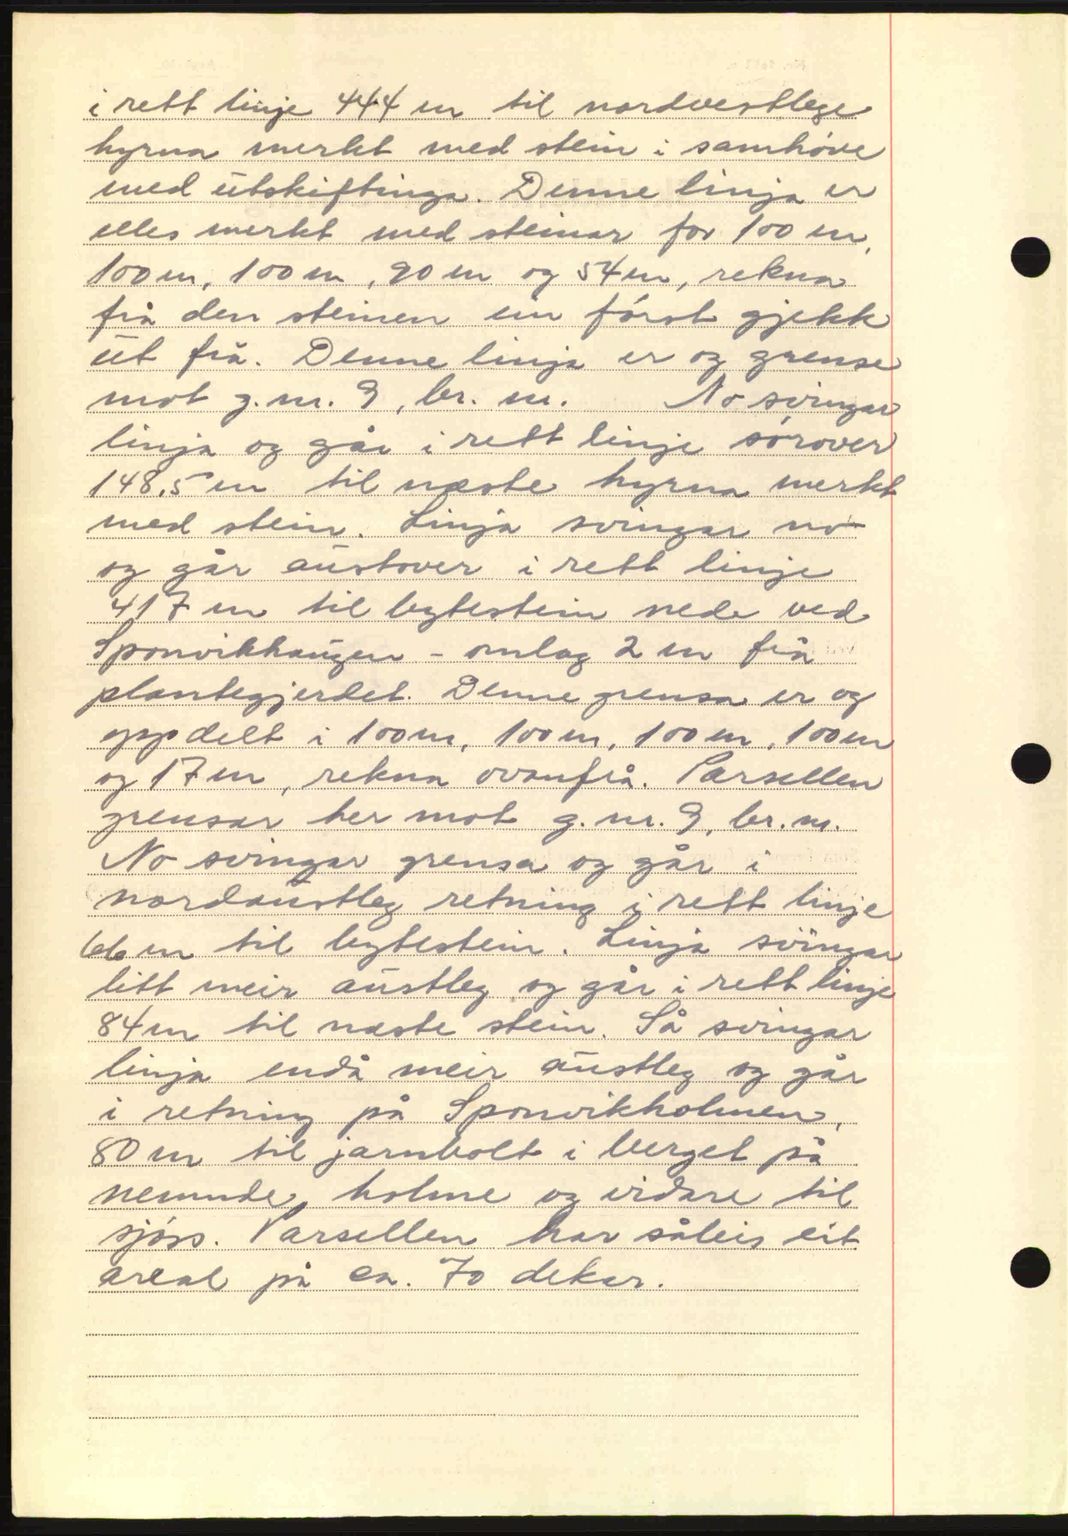 i rett linje 444 m til nordvestlege
hyrna merkt med stein i samhøve
med utskiftinga. Denne linja er
elles merkt med steinar for 100 m,
100 m, 100 m, 90 m og 54 m, rekna
frå den steinen ein først gjekk
ut frå. Denne linja er og grense
mot g.nr. 9, br. nr. No svingar
linja og går i rett linje sørover
148,5 m til næste hyrna merkt
med stein. Linja svingar no
og går austover i rett linje
417 m til bytestein nede ved
Sponvikhaugen - omlag 2 m frå
plantegjerdet. Denne grensa er og
oppdelt i 100 m, 100 m, 100 m, 100 m
og 17 m, rekna ovanfrå. Parsellen
grensar her mot g.nr. 9, br.nr.
No svingar grensa og går i
nordaustleg retning i rett linje
66 m til bytestein. Linja svingar
litt meir austleg og går i rett linje
84 m til næste stein. Så svingar
linja endå meir austleg og går
i retning på Sponvikholmen,
80 m til jarnbolt i berget på
nemnde holme og vidare til
sjøss. Parsellen har såleis eit
areal på ca. 70 dekar.